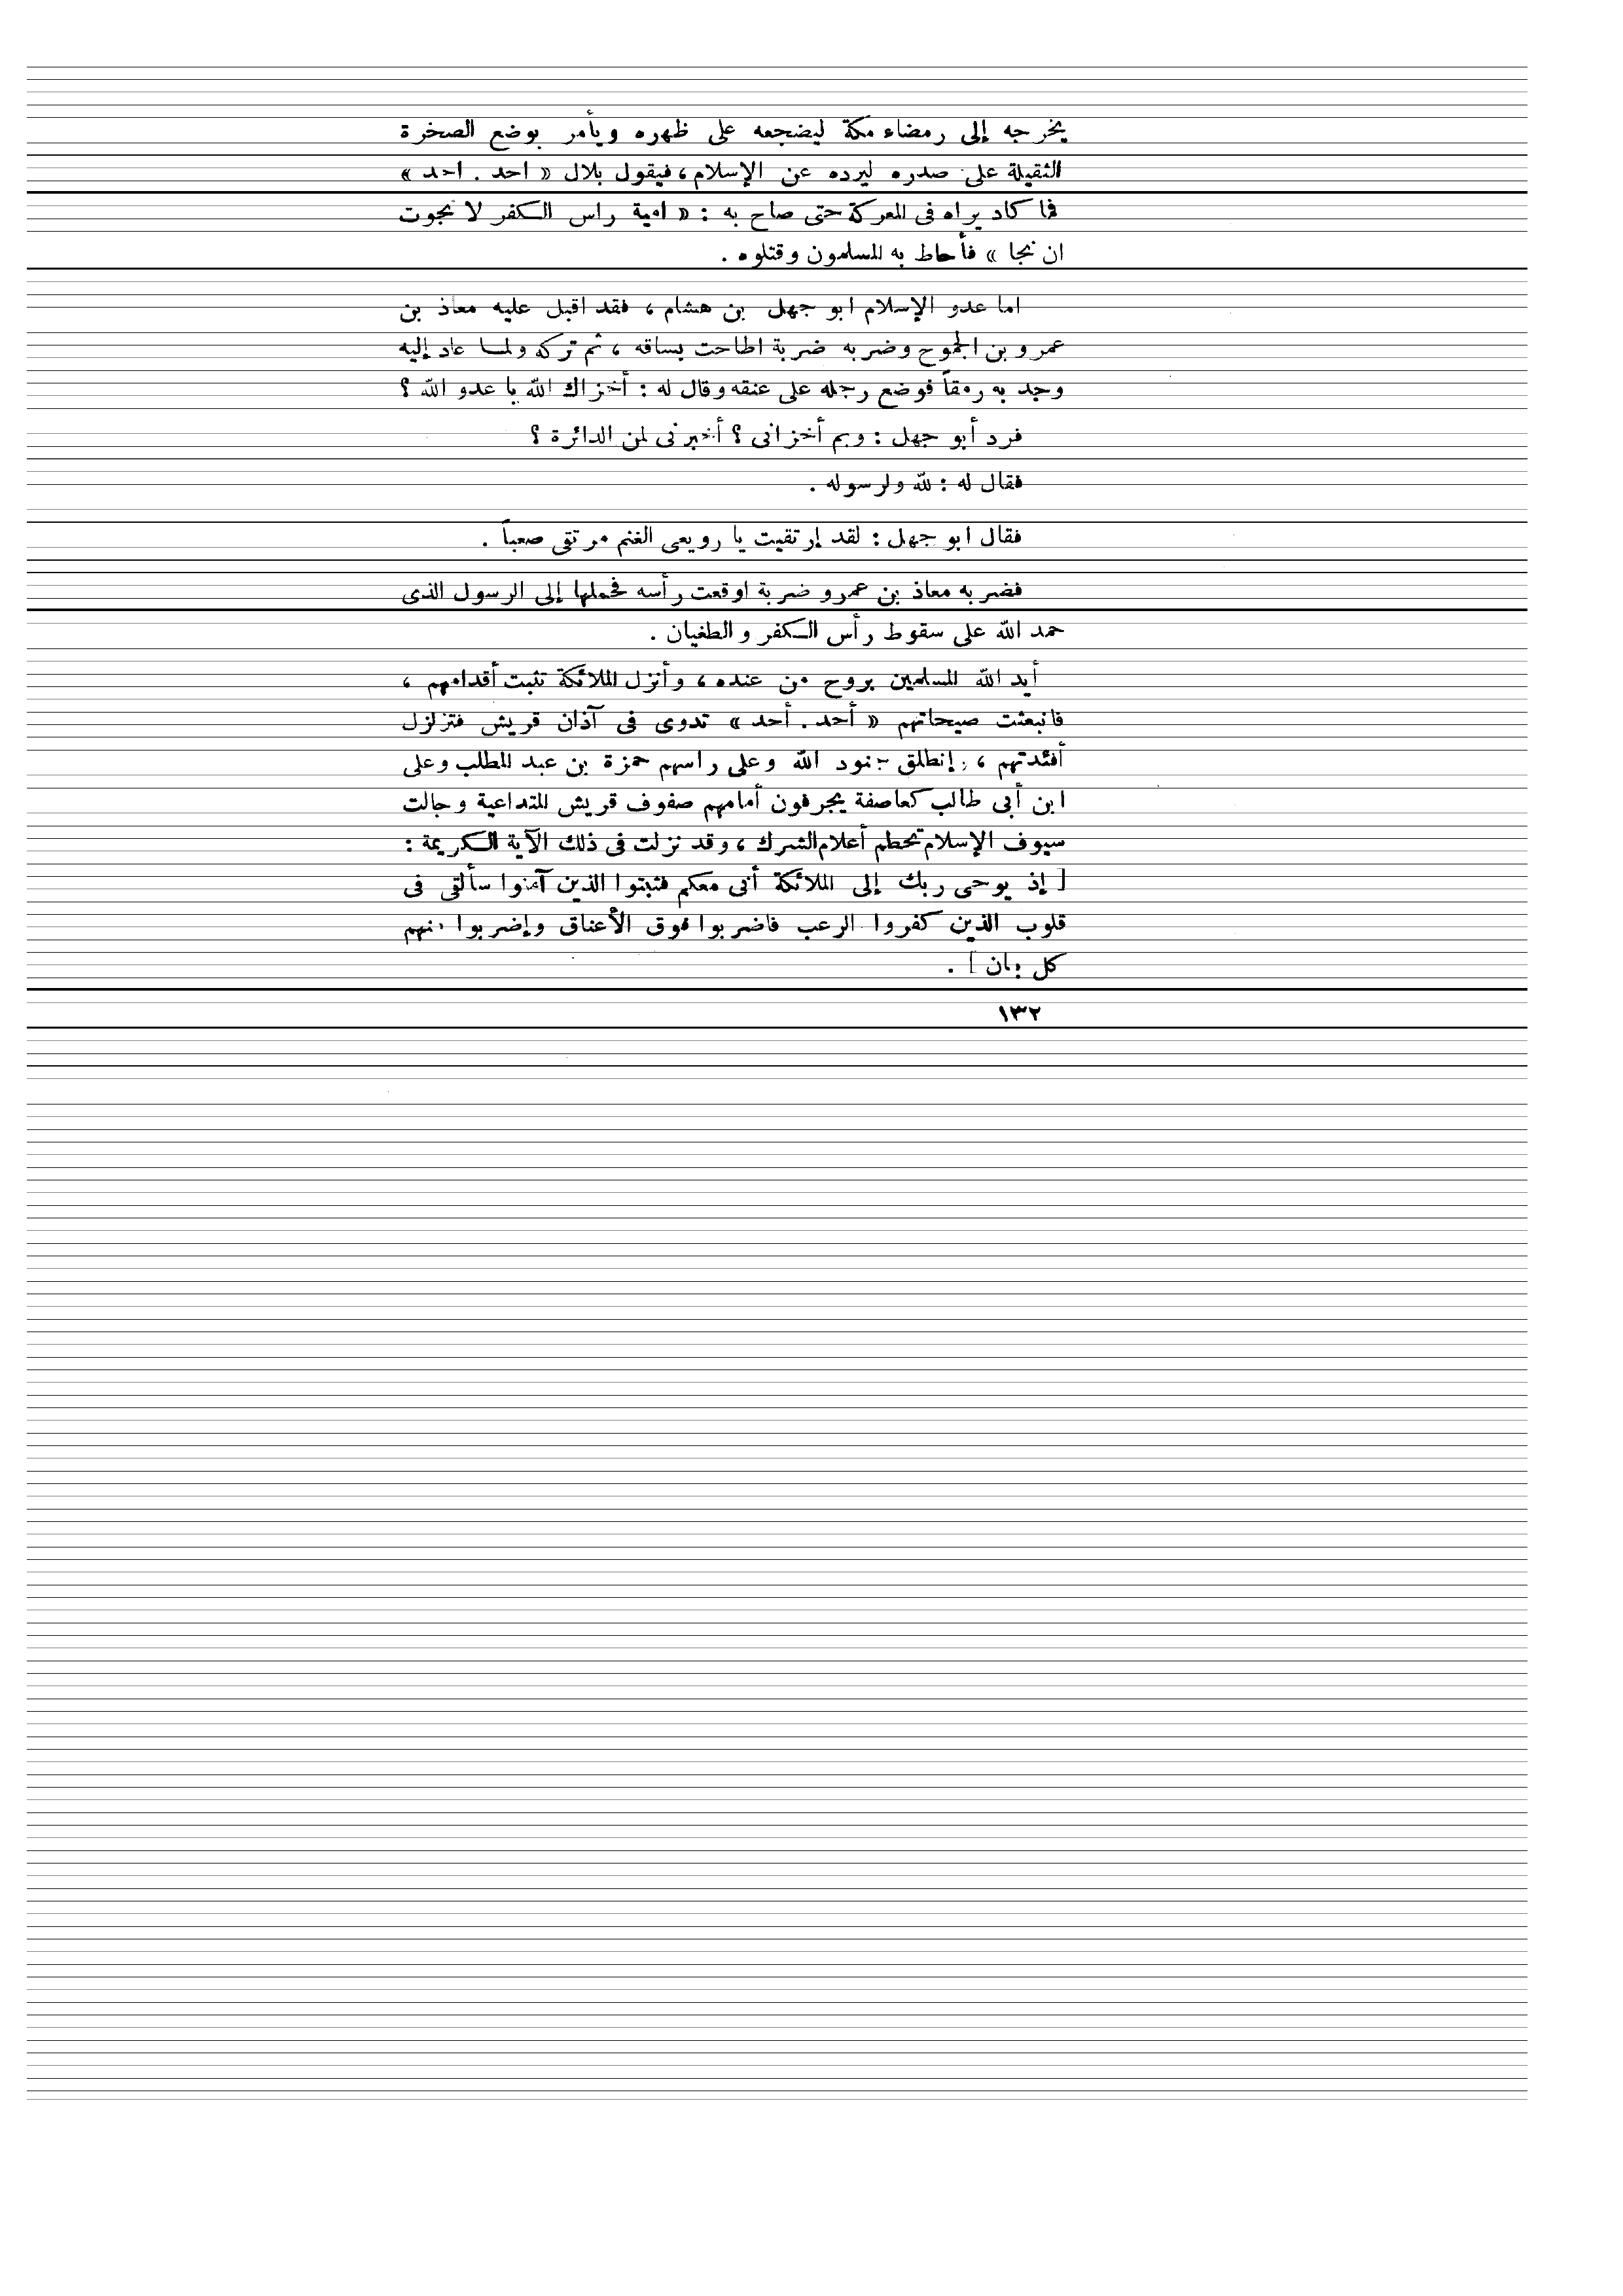 يخرجه إلى رمضاء مكة ليضجعه على ظهره ويأمر بوضع الصخرة
الثقيلة على صدره ليرده عن الإسلام ، فيقول بلال « احد . احد »
فما كاد يراه فى المعركة حتى صاح به : « امية راس الكفر لا نجوت
ان نجا » فأحاط به المسلمون وقتلوه .
اما عدو الإسلام ابو جهل بن هشام ، فقد اقبل عليه معاذ بن
عمرو بن الجموح وضربه ضربة اطاحت بساقه ، ثم تركه ولما عاد إليه
وجد به رمقاً فوضع رجله على عنقه وقال له : أخزاك الله يا عدو الله ؟
فرد أبو جهل : وبم أخزانى ؟ أخبرنى لمن الدائرة ؟
فقال له : لله ولرسوله .
فقال ابو جهل : لقد إرتقيت يا رويعى الغنم مرتقى صعباً .
فضربه معاذ بن عمرو ضربة اوقعت رأسه فحملها إلى الرسول الذى
حمد الله على سقوط رأس الكفر والطغيان .
أيد الله المسلمين بروح من عنده ، وأنزل الملائكة تثبت أقدامهم ،
فانبعثت صيحاتهم « أحد . أحد » تدوى فى آذان قريش فتزلزل
أفئدتهم ، إنطلق جنود الله وعلى راسهم حمزة بن عبد المطلب وعلى
ابن أبى طالب كعاصفة يجرفون أمامهم صفوف قريش المتداعية وجالت
سيوف الإسلام تحطم أعلام الشرك ، وقد نزلت فى ذلك الآية الكريمة :
[ إذ يوحى ربك إلى الملائكة أنى معكم فثبتوا الذين آمنوا سألقى فى
قلوب الذين كفروا الرعب فاضربوا فوق الأعناق وإضربوا منهم
كل بنان ] .
١٣٢